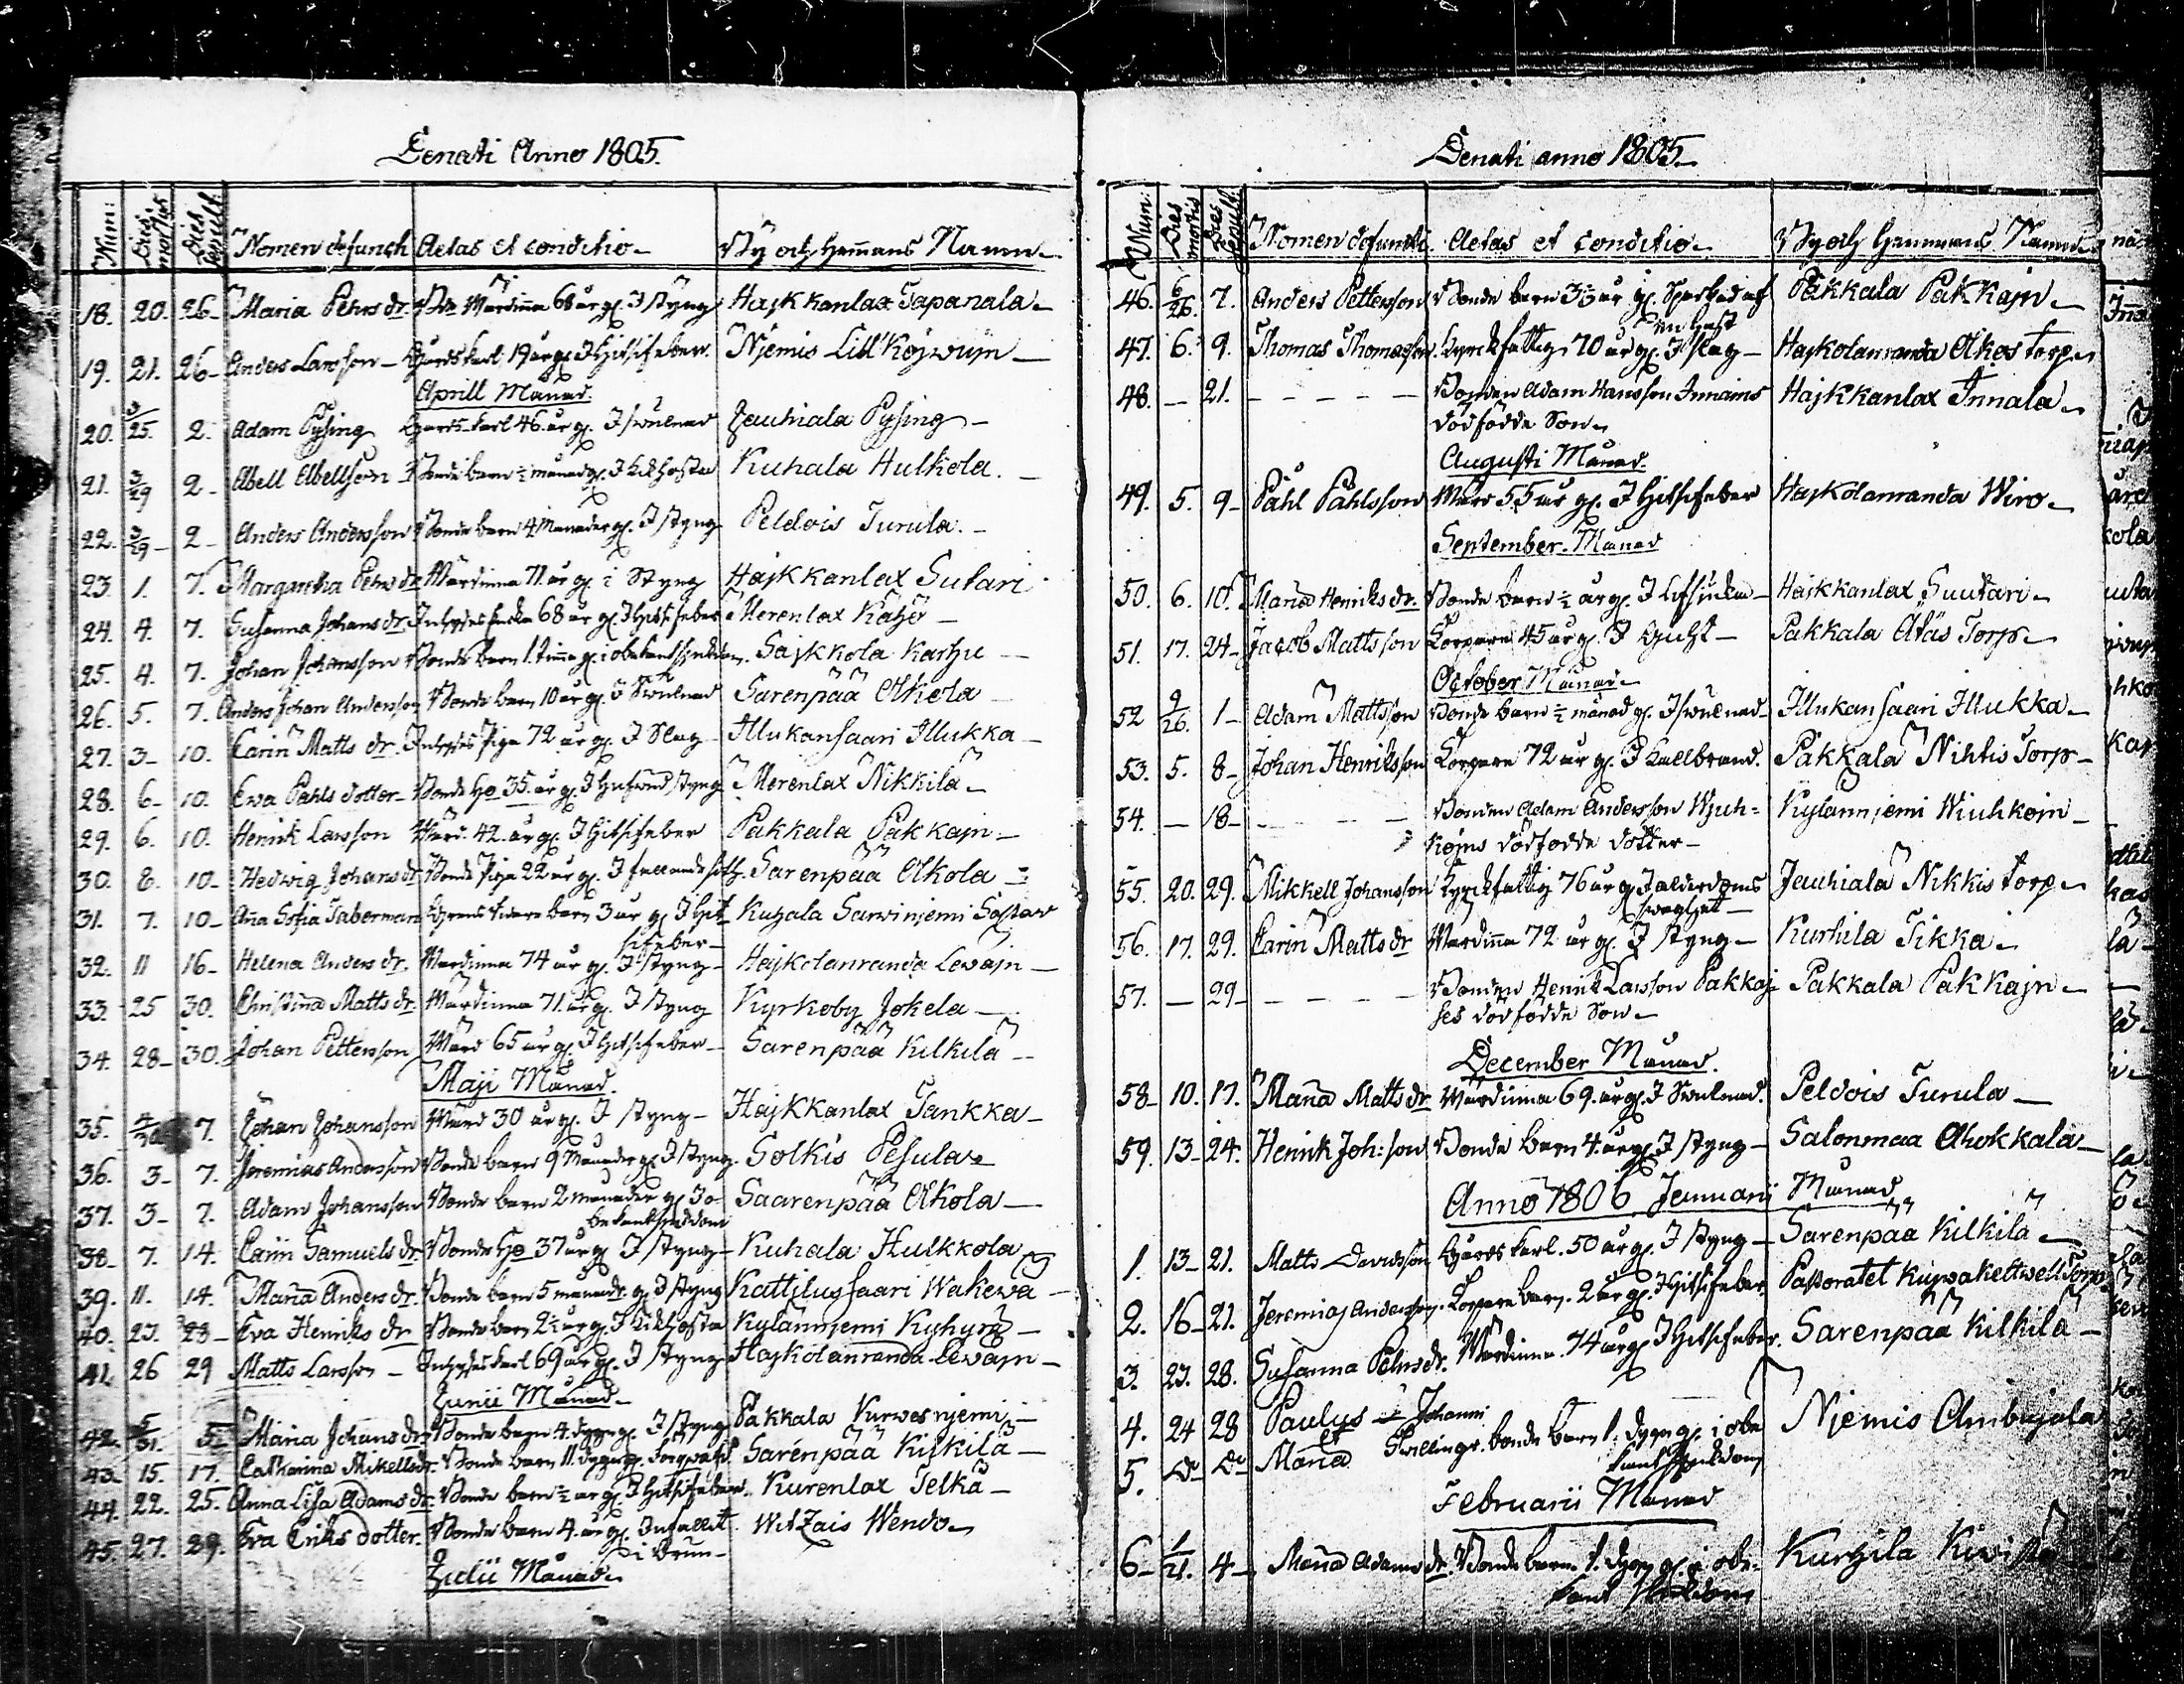 Denati Anno 1805.
Num: Dies mortis Dies sepult. Nomen defuncti Aetas et conditio By och Hemmans Namn
18. 20. 26 Maria Pehrs dr. Wärdinna 68 år gl. I styng Hajkkanlax Tapanala
19. 21. 26 Anders Larsson Gårds karl 19 år gl. I Hitsifeber Njemis Lill Kojwuijn
Aprill Månad.
20. 3/25. 2. Adam Pysing karl 46 år gl. I swulnad Jauhiala Pysing
21. 3/29 2 Abell Abellson Bonde barn ½ månad gl. I kikhosta Kuhala Hulkola.
22. 3/29 2 Anders Andersson Bonde barn 4 Månader gl. I styng Peldois Turula.
23. 1. 7. Margaretha Pehrs dr Wärdinna 71 år gl. i Styng Hajkkanlax Sutari
24. 4. 7. Susanna Johans dr. Inhyses 68 år gl. I Hitsifeber Merenlax Kähö
25. 4. 7. Johan Johansson Bonde barn 1. timme gl. i obekant sjukdom. Sajkkola Karhu
26. 5. 7. Anders Johan Andersson Bonde barn 10 år gl. I Swulnad Sarenpää Akola
27. 3 10. Carin Matts dr. Inhyses Piga 72 år gl. I Slag Illukansaari Illukka
28. 6 10. Ewa Påhls dotter Bonde Ho 35. år gl. I styng Merenlax Nikkilä
29. 6. 10. Henrik Larsson Wärd. 42. år gl. I Hitsifeber Pakkala Pakkajn
30. 8. 10 Hedwig Johans dr Bonde Piga 22 år gl. I fallande soth. Sarenpää Akola
31. 7. 10 Aña Sofia Taberman barn 3 år gl. I Hit- Kuhala Sarwinjemi
sifeber
32. 11 16 Helena Anders dr. Wärdinna 74 år gl. I styng Hajkolanranda Lewäjn
33. 25 30. Christina Matts dr. Wärdinna 71. år gl. I styng Kyrkoby Jokela
34. 28 30. Johan Pettersson Wärd 65 år gl. I Hitsifeber Sarenpää Kilkilä
Maji Månad.
35. 4/30 7. Johan Johansson Wärd 30 år gl. I styng Hajkkanlax Tankka
36. 3 7. Jeremias Andersson Bonde barn 9 Månader gl. I styng. Solkis Pesula
37. 3 7. Adam Johansson Bonde barn 2 månader gl. I o- Saarenpää Akola
bekant sjukdom
38 7. 14. Carin Samuels dr. Bonde Ho 37 år gl. I styng Kuhala Hulkkola
39. 11. 14. Maria Anders dr. Bonde barn 5 månadr. gl. I styng Kattilussaari Wakewa
40. 23. 23 Ewa Henriks dr Bonde barn 2½ år gl. I kikhosta Kylännjemi Kyhyrä
41. 26 29 Matts Larsson Inhyses karl 69 år gl. I styng Hajkolanranda Lewäjn
Junii Månad
42. 5/31. 5 Maria Johans dr. Bonde barn 4. dygn gl. I styng Pakkala Kurwesnjemi
43 15. 17. Catharina Mikells dr. Bonde barn 11. dygn gl. Sarenpää Kilkilä
44. 22. 25. Anna Lisa Adams dr. Bonde barn ½ år gl. I Hitsifeber Kurenlax Telkä
45. 27. 29. Ewa Eriks dotter. Bonde barn 4. år gl. Infallit Witzais Wendo
i brun
Julii Månad
Denati anno 1805
Num: Dies mortis Dies sepult. Nomen defuncti. Aetas et conditio By och Hemmans Namn
46. 6/26. 7. Anders Pettersson Bonde barn 3½ år gl. Sparkad af Pakkala Pakkajn
en häst
47. 6. 9. Thomas Thomasson. Kyrckfattig 70 år gl. I slag Hajkolanranda Akos torp
48. 21. Bonden Adam Hansson Innains Hajkkanlax Innala
dödfödde Son
Augusti Månad.
49. 5. 9 Påhl Påhlsson Wärd 55 år gl. I Hitsifeber Hajkolanranda Wiro
September. Månad
50. 6. 10. Maria Henriks dr. Bonde barn ½ år gl. I Hajkkanlax Suutari
51. 17. 24 Jacob Mattsson Torpare 45 år gl. I Pakkala Atäs Torp
October Månad
52 9/26. 1 Adam Mattsson Bonde barn ½ månad gl. I swulnad Illukansaari Illukka
53. 5. 8 Johan Henriksson Torpare 72 år gl. I kallbrand. Pakkala Nihtis Torp
54. 18 Bonden Adam Andersson Wjuh= Kylännjemi Wiuhkoin
kojns dödfödde dotter
55. 20. 29. Mikkell Johansson Kyrckfattig 76 år gl. I ålderdoms Jauhiala Nikkis torp
swaghet
56. 17. 29. Carin Matts dr Wärdiña 72 år gl. I styng Kurhila Tikka
57. 29 Bonden Henrik Larsson Pakkaj- Pakkala Pakkajn
ses dödfödde Son
December Månad.
58 10. 17. Maria Matts dr Wärdinna 69. år gl. I Swulnad. Peldois Turula
59. 13 24. Henrik Joh:son Bonde barn 4. år gl. I styng Salonmaa Ahokkala
Anno 1806 Januarii Månad
1. 13 21. Matts Davidsson Gårds karl. 50 år gl. I styng Sarenpää Kilkilä
2. 16 21. Jeremias Andersson. Torpare barn. 2 år gl. I Hitsifeber Pastoratet Kujwaketwell Torp
3. 23. 28. Susanna Pehrs dr. Wärdinna. 74 år gl. I Hitsifeber. Sarenpää Kilkilä
4. 24 28 Paulus Johanni
et Twillingr. bonde barn 1. dygn gl. i obe Njemis Ambujala
5. Do Do Maria kant sjukdom
Februarii Månad
6 1/21. 4 Maria Adams dr. Bonde barn 1. dygn gl. i obe- Kurhila
kant sjukdom